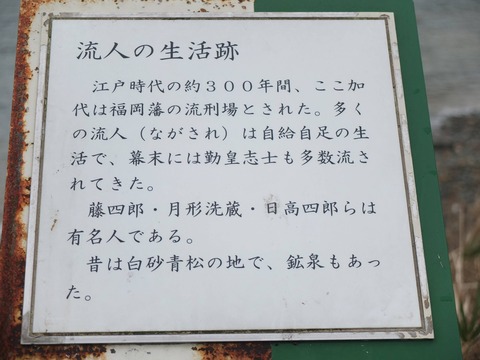 流人の生活跡
江戸時代の約３００年間、ここ加
代は福岡藩の流刑場とされた。多く
の流人（ながされ）は自給自足の生
活で、幕末には勤皇志士も多数流さ
れてきた。
藤四郎・月形洗蔵・日高四郎らは
有名人である。
昔は白砂青松の地で、鉱泉もあっ
た。